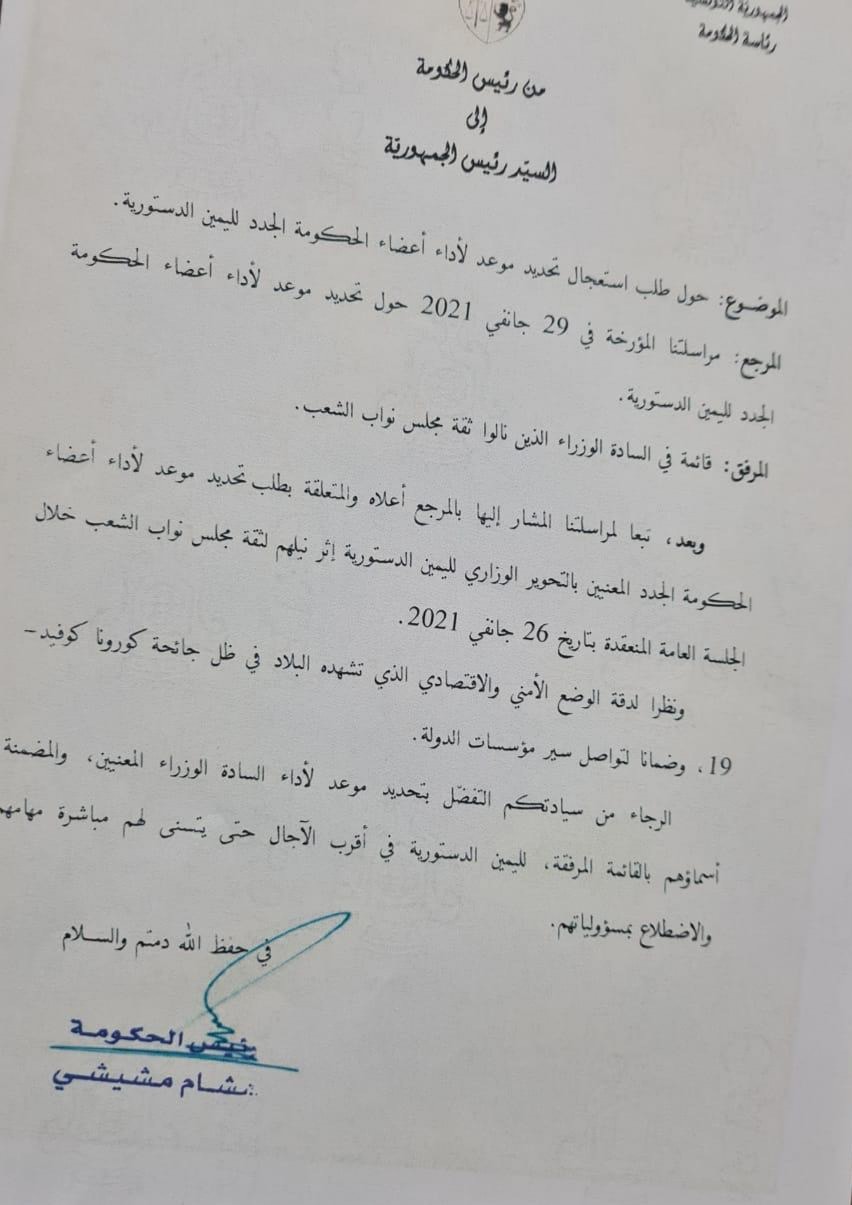 الجمهورية التونسية
رئاسة الحكومة
من رئيس الحكومة
إلى
السيّد رئيس الجمهوريّة
الموضوع: حول طلب استعجال تحديد موعد لأداء أعضاء الحكومة الجدد لليمين الدستورية.
المرجع: مراسلتنا المؤرخة في 29 جانفي 2021 حول تحديد موعد لأداء أعضاء الحكومة
الجدد لليمين الدستورية.
المرفق: قائمة في السادة الوزراء الذين نالوا ثقة مجلس نواب الشعب.
وبعد، تبعا لمراسلتنا المشار إليها بالمرجع أعلاه والمتعلقة بطلب تحديد موعد لأداء أعضاء
الحكومة الجدد المعنيين بالتحوير الوزاري لليمين الدستورية إثر نيلهم لثقة مجلس نواب الشعب خلال
الجلسة العامة المنعقدة بتاريخ 26 جانفي 2021.
ونظرا لدقة الوضع الأمني والاقتصادي الذي تشهده البلاد في ظل جائحة كورونا كوفيد-
19، وضمانا لتواصل سير مؤسسات الدولة.
الرجاء من سيادتكم التفضّل بتحديد موعد لأداء السادة الوزراء المعنيين، والمضمنة
أسماؤهم بالقائمة المرفقة، لليمين الدستورية في أقرب الآجال حتى يتسنى لهم مباشرة مهامهم
والاضطلاع بمسؤولياتهم.
في حفظ الله دمتم والسلام
رئيس الحكومة
هشام مشيشي